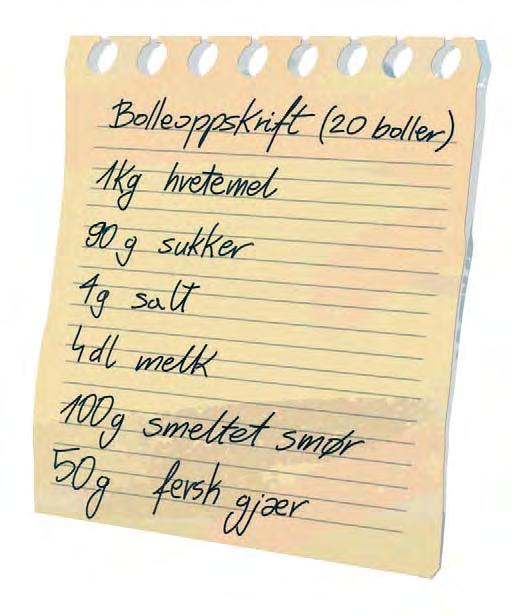 Bolleoppskrift (20 boller)
1kg hvetemel
90 g sukker
4g salt
4 dl melk
100g smeltet smør
50g fersk gjær